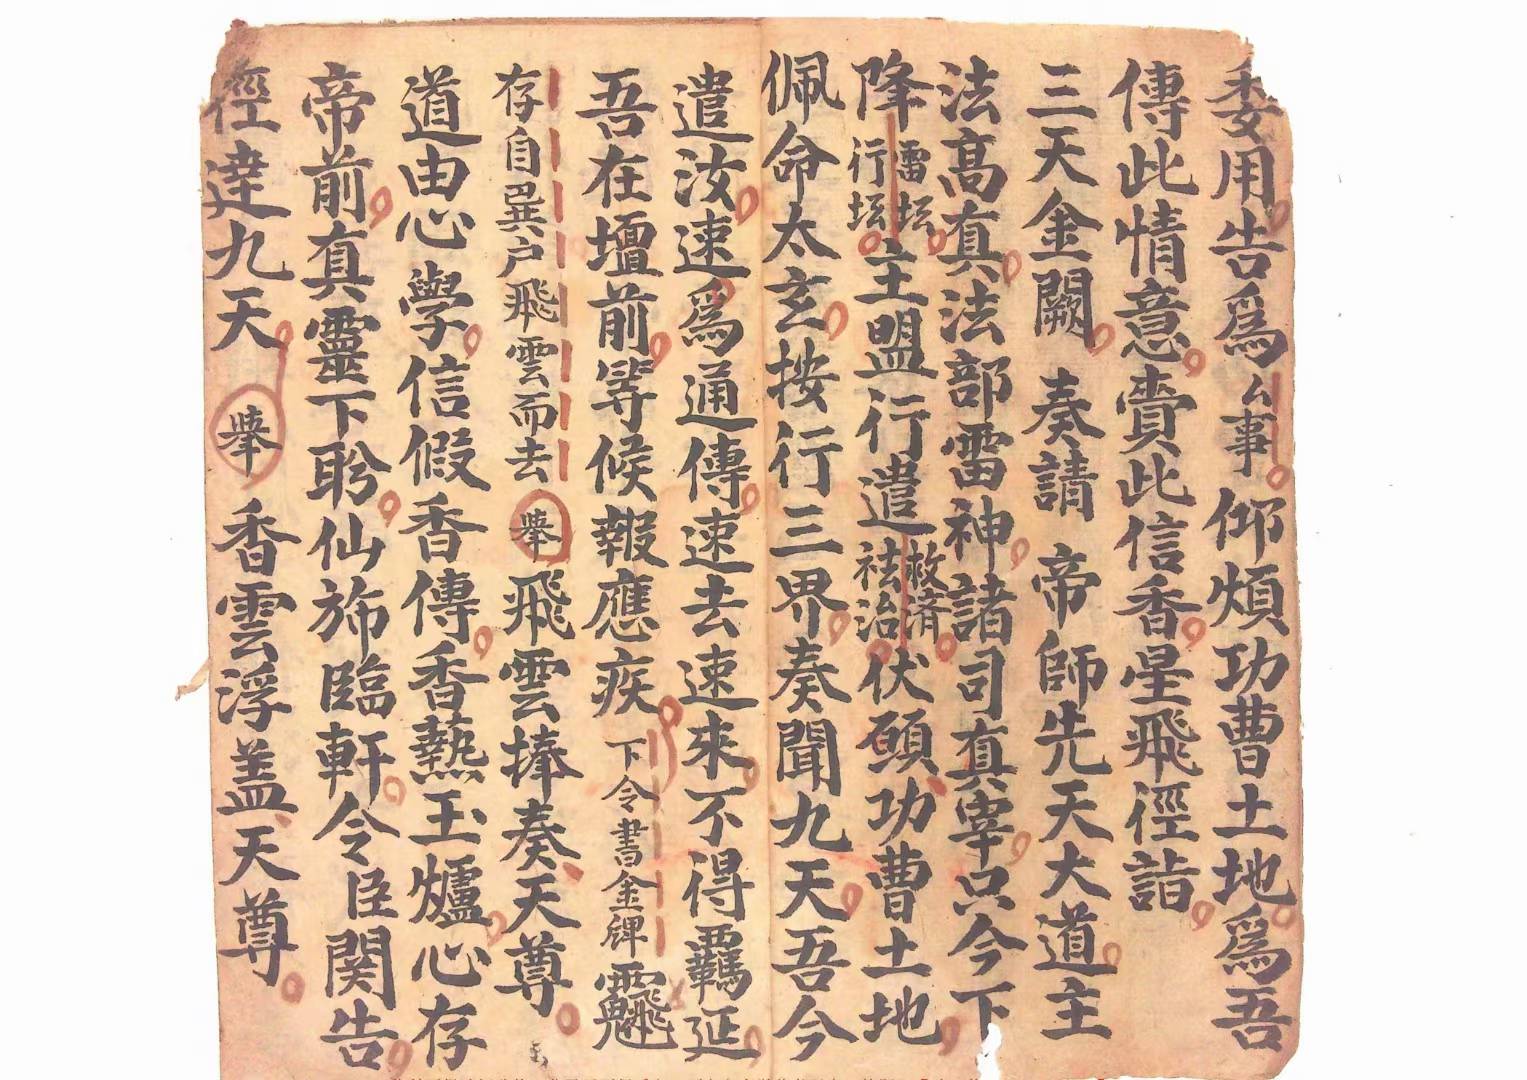 委用告爲厶事仰煩功曹土地爲吾
傳此情意賫此信香星飛徑詣
三天金闕 奏請 帝師先天大道主
法髙真法部雷神諸司真宰只今下
降雷坛行坛主盟行遣救済祛治伏願功曹土地
佩命太玄按行三界奏聞九天吾今
遣汝速爲通傳速去速來不得羈延
吾在壇前等候報應疾下令書金牌
存自巽户飛雲而去 舉 飛雲捧奏天尊
道由心學信假香傳香熱玉爐心存
帝前真靈下盻仙斾臨軒令臣関告
徑達九天 舉 香雲浮盖天尊